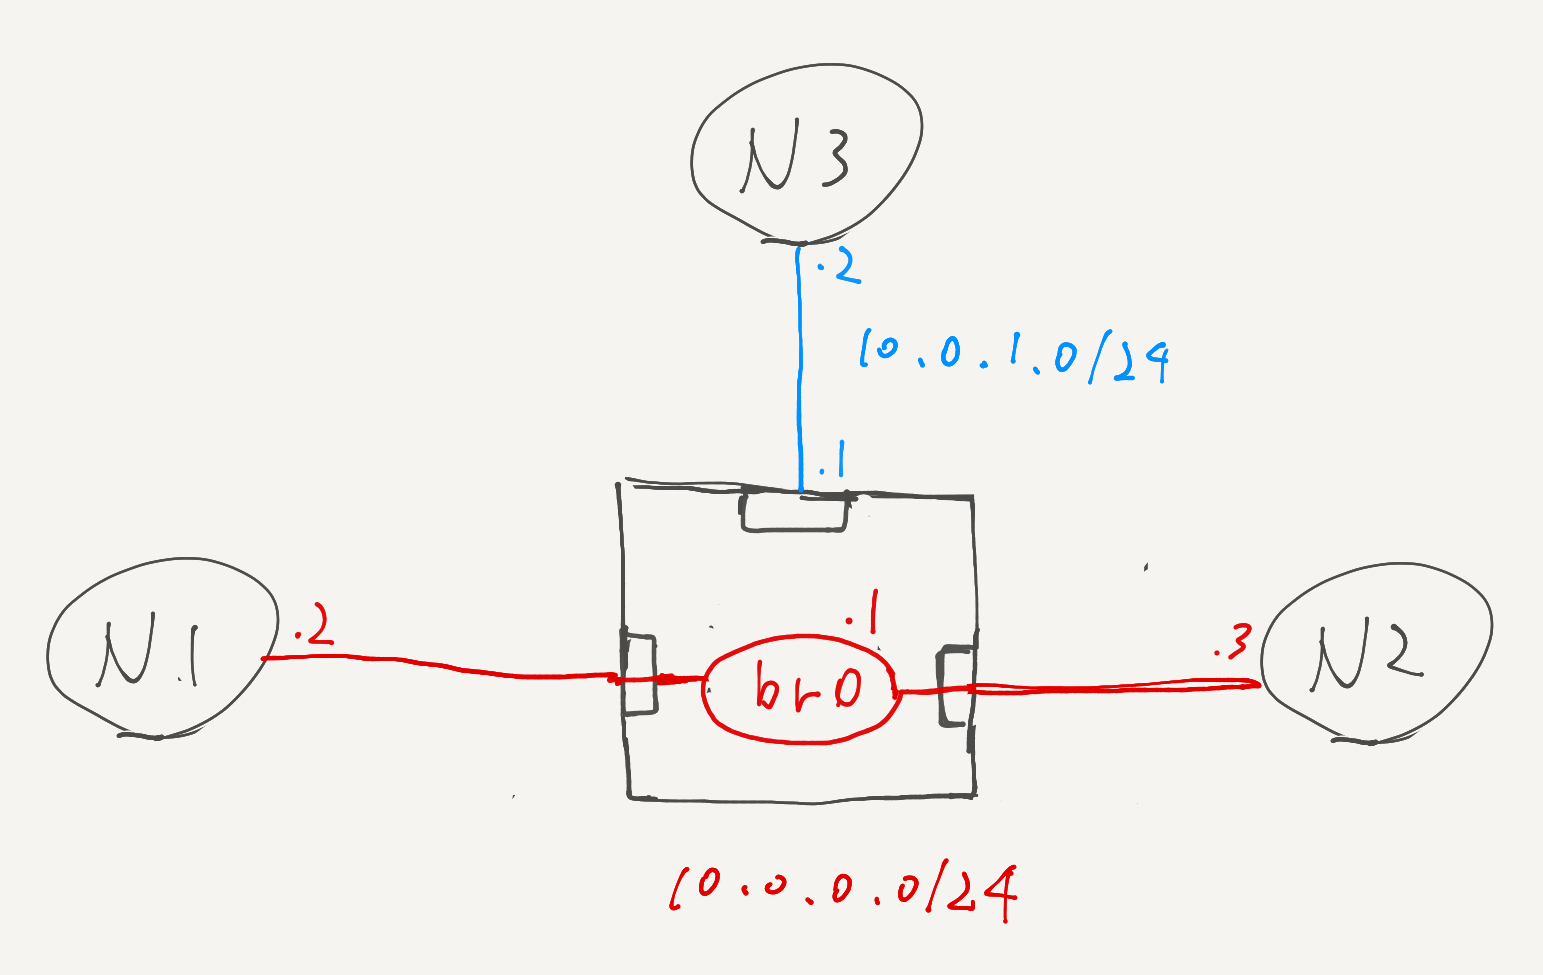 N3
.2
10.0.1.0/24
.1
N1
.2
.1
br0
.3
N2
10.0.0.0/24